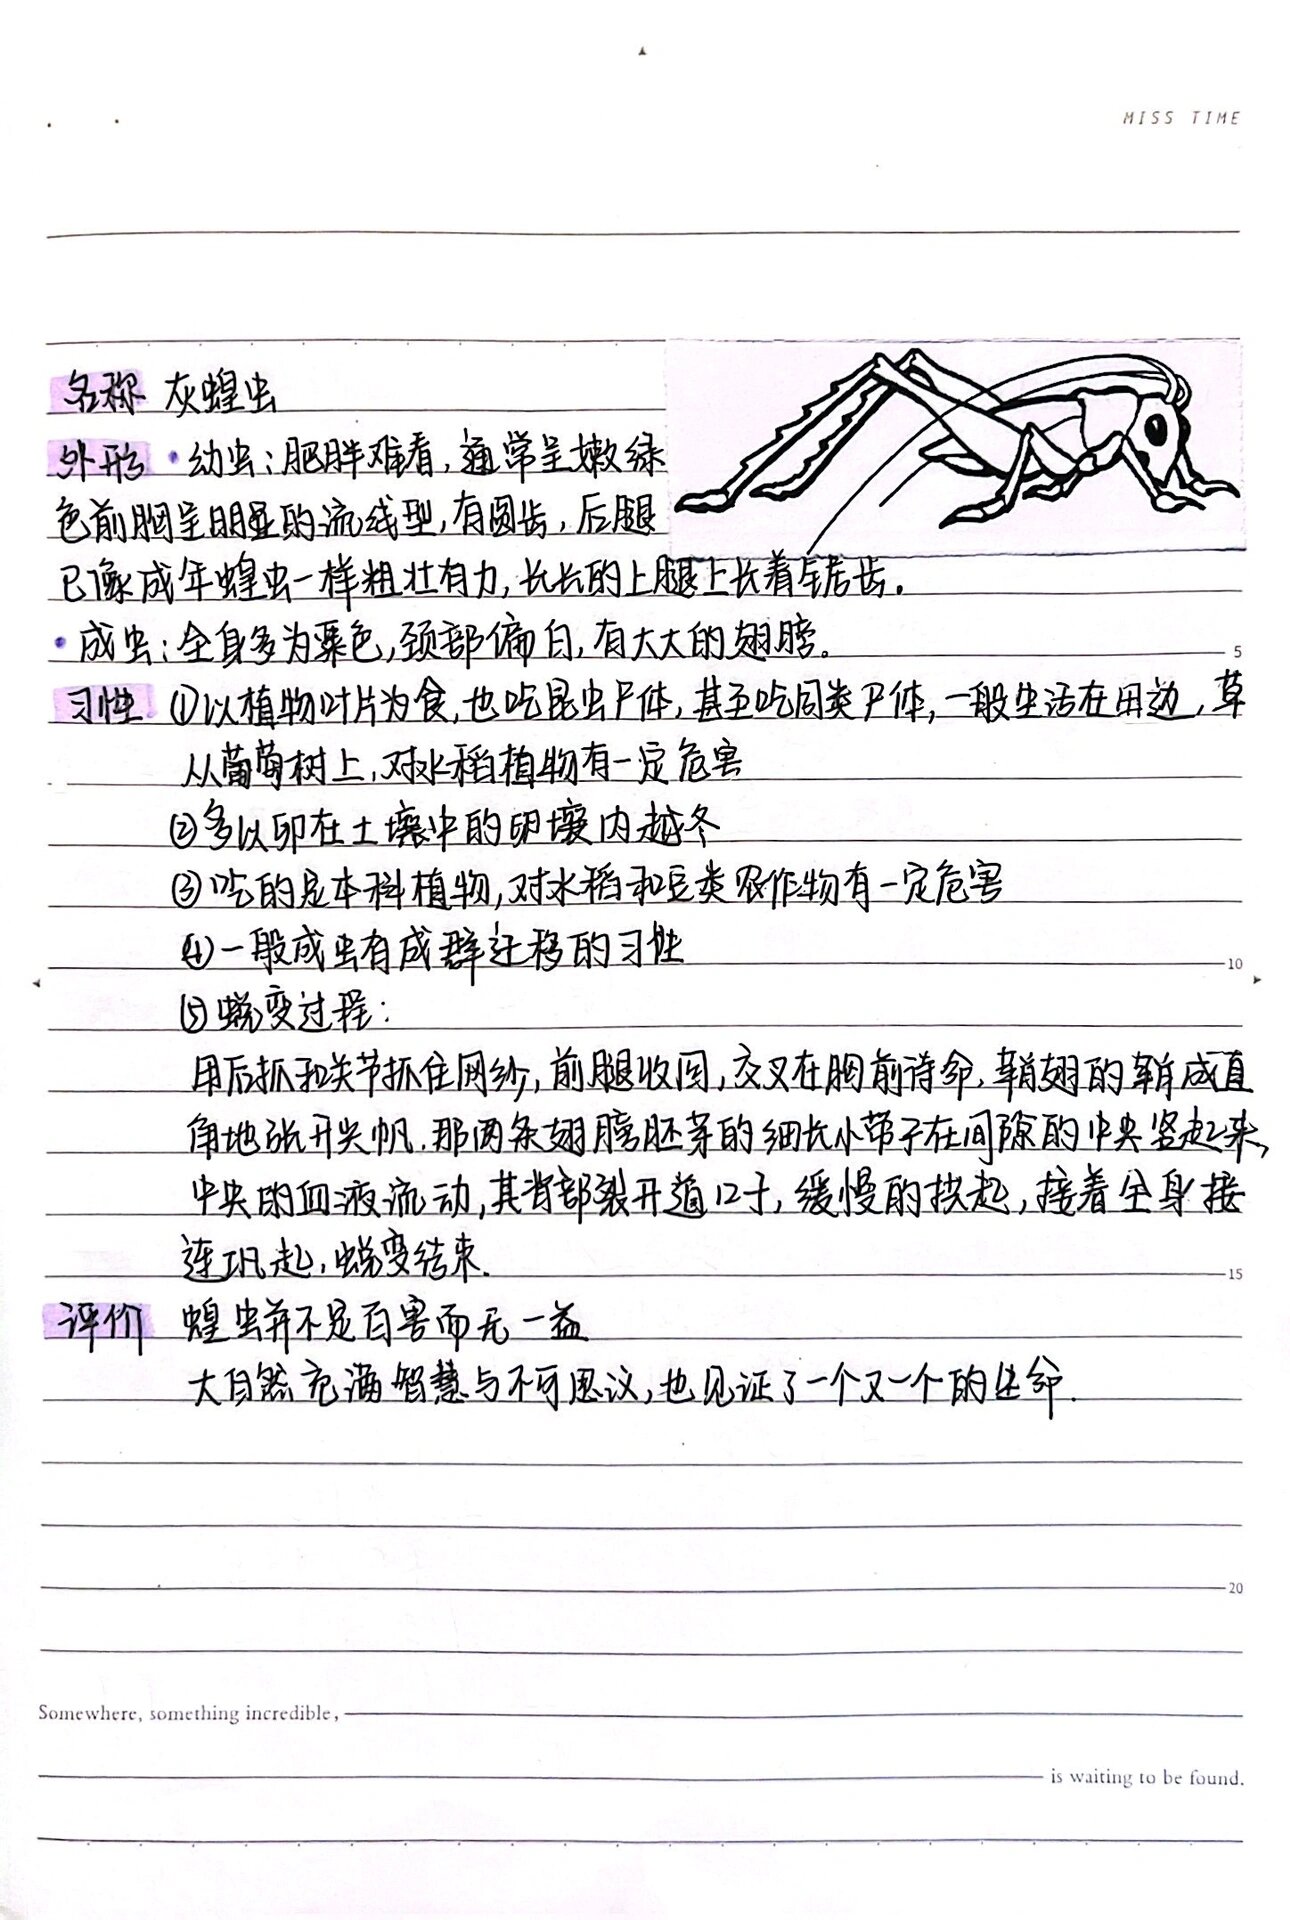 MISS TIME
名称 灰蝗虫
外形 ·幼虫：肥胖难看，通常呈嫩绿
色前胸呈明显的流线型，有圆齿，后腿
已像成年蝗虫一样粗壮有力，长长的上腿上长着锯齿。
·成虫：全身多为栗色，颈部偏白，有大大的翅膀。
5
习性 ①以植物叶片为食，也吃昆虫尸体，甚至吃同类尸体，一般生活在田边，草
从葡萄树上，对水稻植物有一定危害
②多以卵在土壤中的卵壤内越冬
③吃的是本科植物，对水稻和豆类农作物有一定危害
④一般成虫有成群迁移的习性
10
⑤蜕变过程：
用后抓和关节抓住网纱，前腿收回，交叉在胸前待命，鞘翅的鞘成直
角地张开尖帆，那两条翅膀胚芽的细长小带子在间隙的中央竖起来，
中央的血液流动，其背部裂开道口子，缓慢的拱起，接着全身接
连巩起，蜕变结束.
15
评价 蝗虫并不是百害而无一益
大自然充满智慧与不可思议，也见证了一个又一个的生命.
20
Somewhere, something incredible,
is waiting to be found.